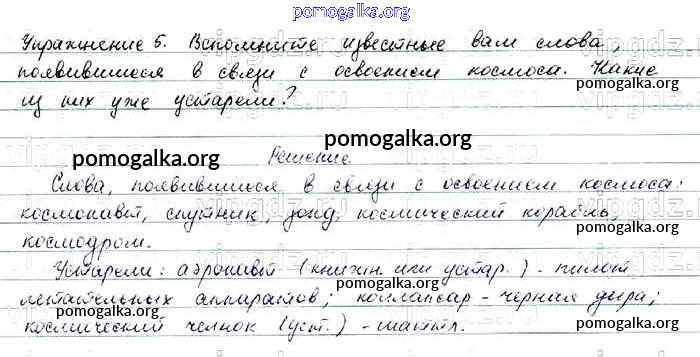 pomogalka.org
Упражнение 5. Вспомните известные вам слова,
появившиеся в связи с освоением космоса. Какие
из них уже устарели?
pomogalka.org
pomogalka.org
Решение
Слова, появившиеся в связи с освоением космоса:
космонавт, спутник, зонд, космический корабль,
pomogalka.org
космодром.
Устарели: аэронавт (книжн. или устар.) - пилот
летательных аппаратов; коллапсар - черная дыра;
pomogalka.org
космический челнок (уст.) - шаттл.
pomogalka.org
pomogalka.org